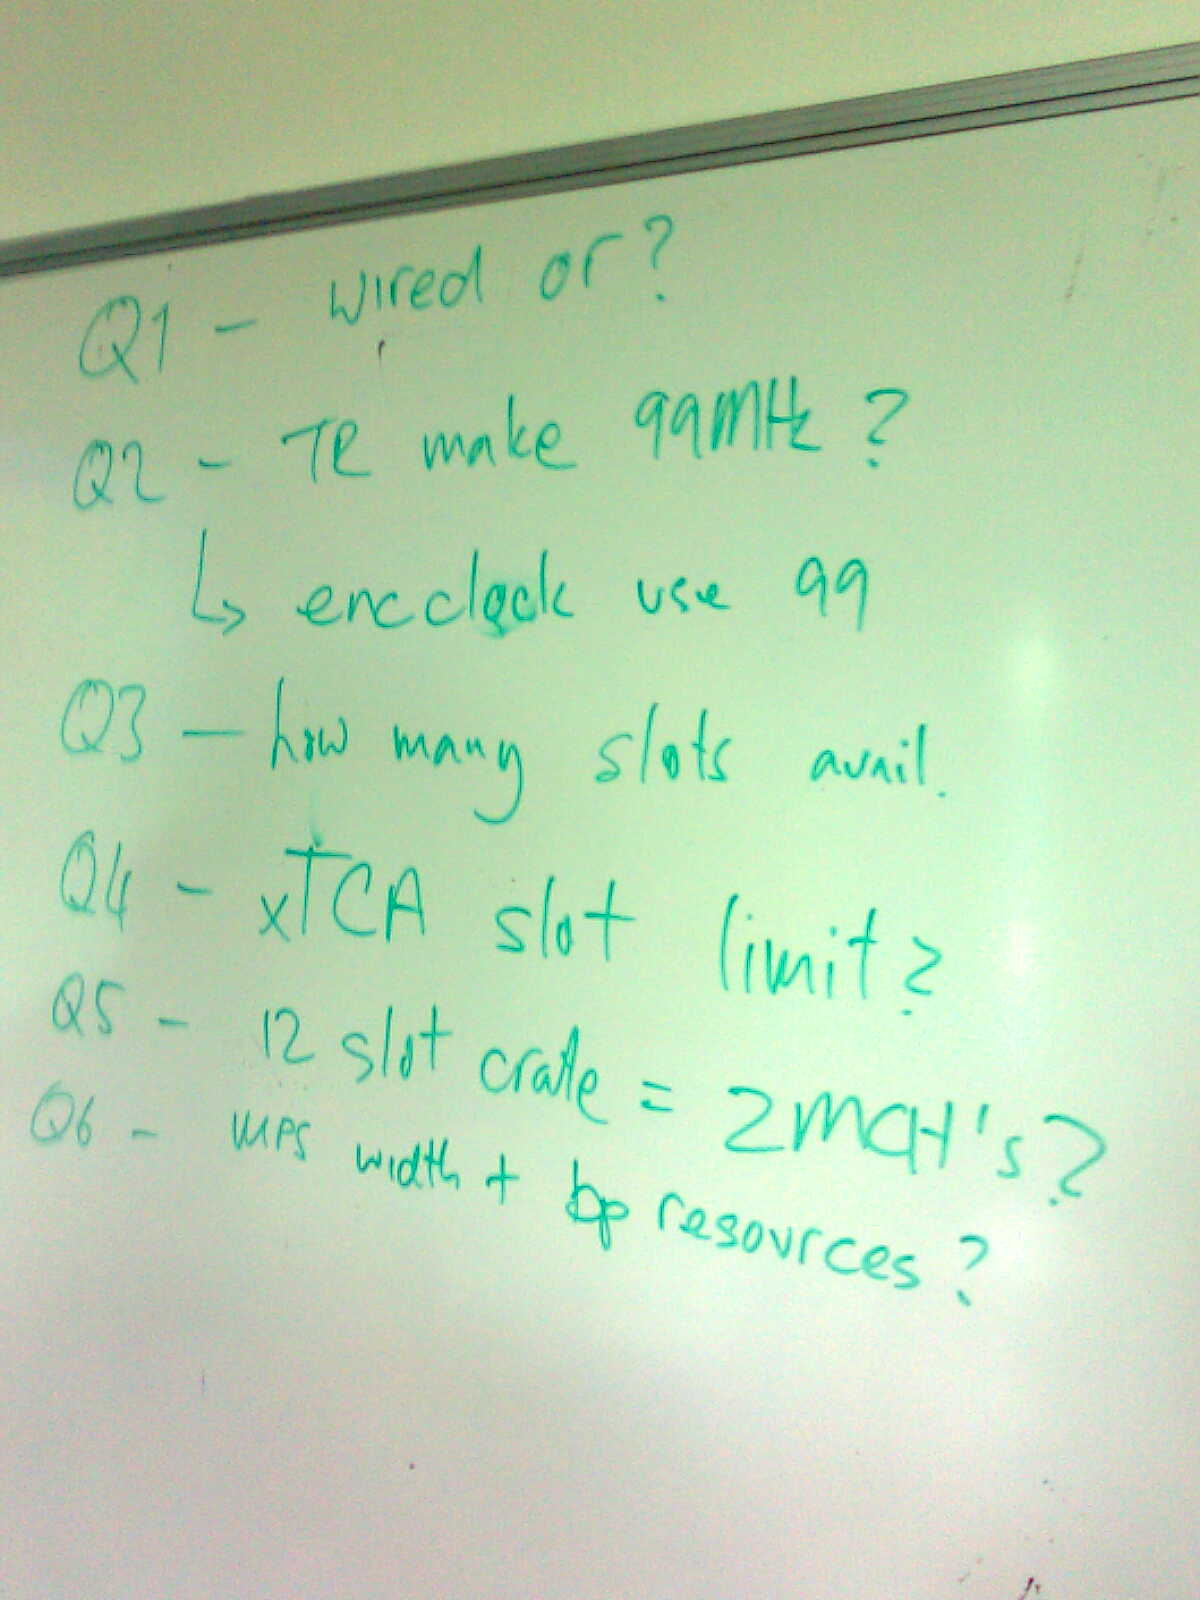 Q1 - wired or?
Q2 - TR make 99MHz ?
↳ encclock use 99
Q3 - how many slots avail.
Q4 - xTCA slot limit?
Q5 - 12 slot crate = 2MCH's?
Q6 - MPS width + bp resources?